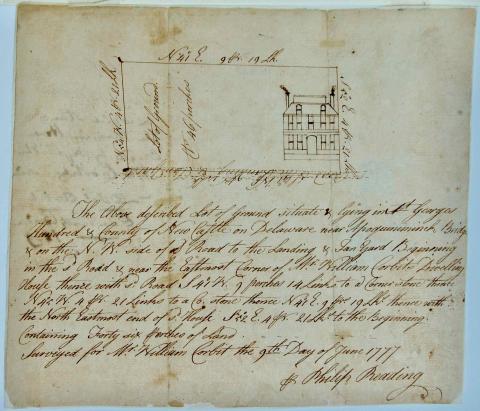 N 47 E. 9 ps 19 Lk.
Lot of Ground
The Above defcribed Lot of Ground situate & lying in St. Georges
Hundred & County of New Castle on Delaware near Apoquiniminck Bridge
& on the N. W. side of ye Road to the Landing & Tan Yard Beginning
in the sd Road & near the Eastmost Corner of Mr. William Corbit's Dwelling
House thence wth sd Road S 47 W. 9 perches 14 Links to a corner stone thence
N 42 W. 4 ps. 21 Links to a Co. stone thence N 47 E. 9 ps. 19 Lks thence with
the North Eastmost end of sd House 4 ps 21 Lks to the Beginning
Containing Forty six perches of Land
Surveyed for Mr. William Corbit the 9th Day of June 1777
Philip Reading